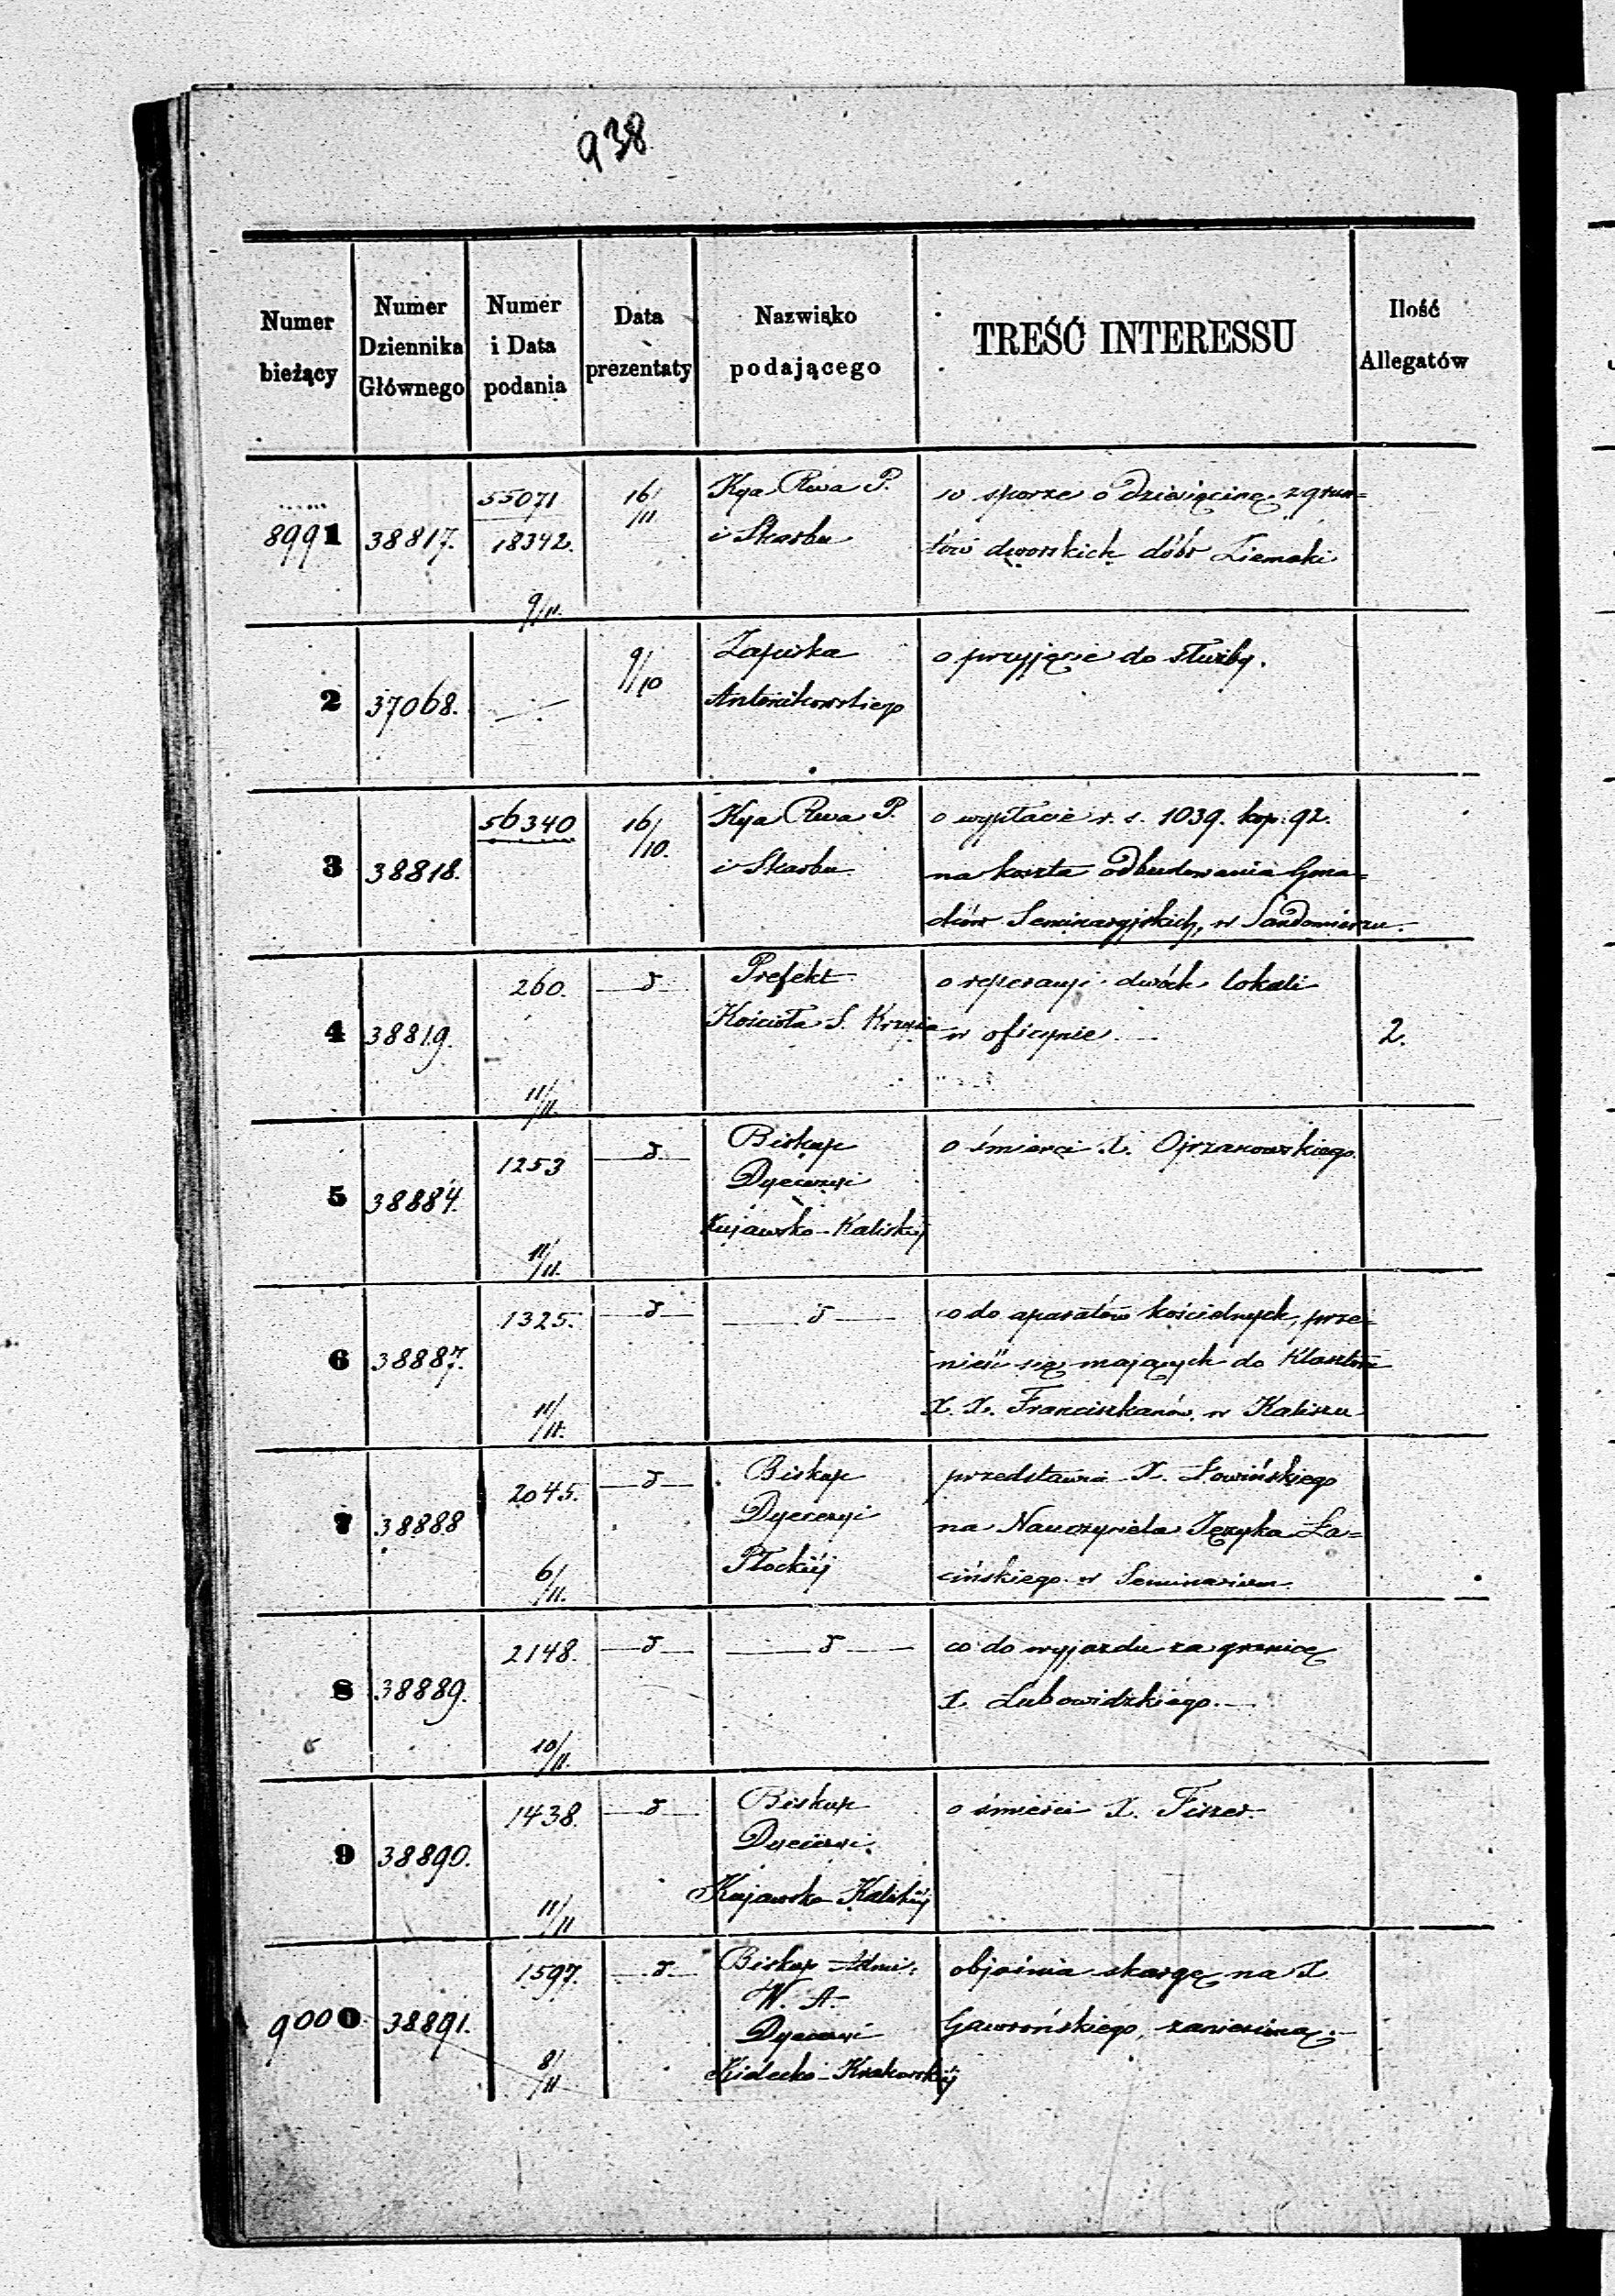 938
Numer bieżący
Numer Dziennika Głównego
Numer i Data podania
Data prezentaty
Nazwisko podającego
TREŚĆ INTERESSU
Ilość Allegatów
8991 38817. 55071 18342. 9/11. 16/11 Kya Rwa P. i Skarbu
w sporze o dziesięcinę z grun=
tów dworskich dóbr Ziemaki
2 37068. 9/10 Zapiska Antonikowskiego
o przyjęcie do służby.
3 38818. 56340 16/10. Kya Rwa P. i Skarbu
o wypłacie r. s. 1039. kop. 92.
na koszta odbudowania Gma=
chów Seminaryjskich, w Sandomierzu.
4 38819. 260. 11/11. d Prefekt Kościoła S. Krzyża
o reperacyi dwóch lokali
w oficynie. 2.
5 38884. 1253 11/11. d Biskup Dyecezyi Kujawsko-Kaliskiej
o śmierci X. Ojrzanowskiego.
6 38887. 1325. 11/11. d d
co do aparatów kościelnych, prze=
nieść się mających do Klasztoru
X. X. Franciszkanów w Kaliszu
7 38888 2045. 6/11. d Biskup Dyecezyi Płockiej
przedstawia X. Łowińskiego
na Nauczyciela Języka Ła=
cińskiego w Seminarium.
8 38889. 2148. 10/11. d d
co do wyjazdu za granicę
X. Lubowidzkiego.
9 38890. 1438. 11/11 d Biskup Dyecezyi Kujawsko Kaliskiej
o śmierci X. Fiszer.
9000 38891. 1597. 8/11 d Biskup Admi. W. A. Dyecezyi Kielecko-Krakowskiej
objaśnia skargę na X
Gawrońskiego, zaniesioną.